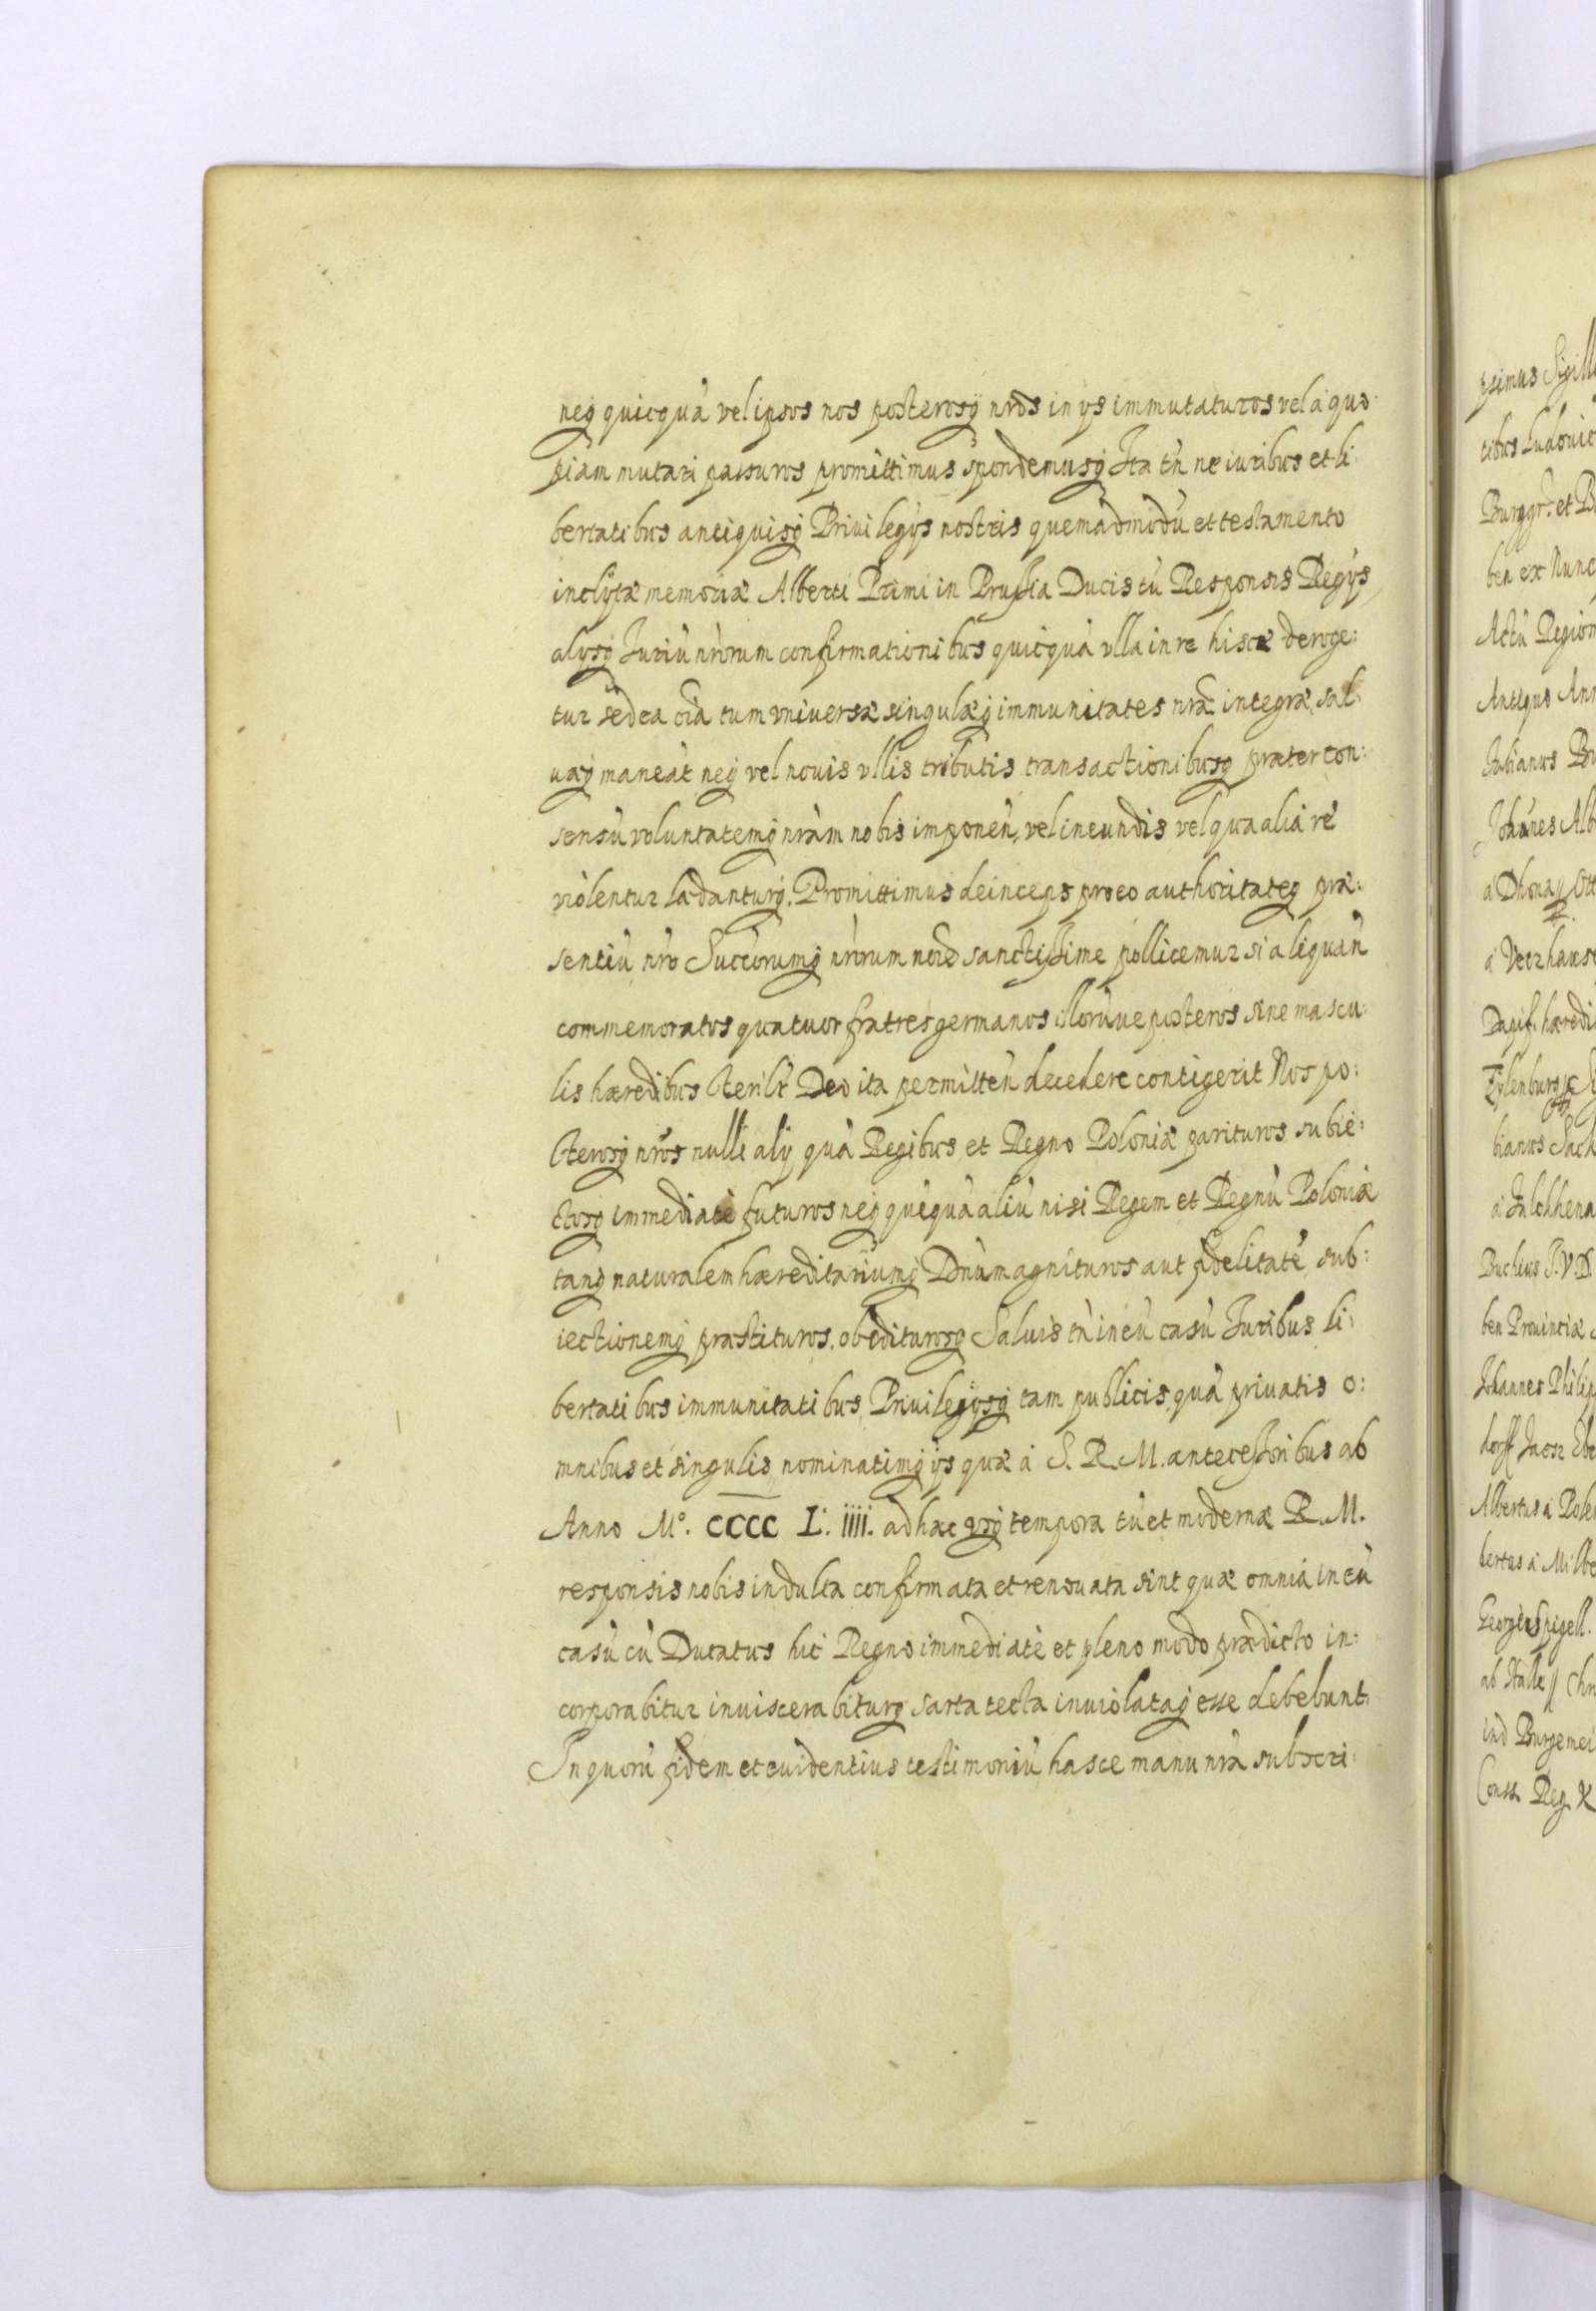 neq quicquà vel ipsos nos posterosq nros in ijs immutaturos vel à quo
piam mutari passuros promittimus spondemusq Ita tn̄ ne iuribus et li
bertatibus antiquisq Priuilegijs nostris quemadmodū et testamento
inclytæ memoriæ Alberti Primi in Prussia Ducis tū Responsis Regijs,
alijsq Juriū nrorum confirmationibus quicquā vlla in re hisce deroge:
tur sed ea oīa tum vniuersæ singulæq immunitates nræ integræ, sal:
uæq maneāt neq vel nouis vllis tributis transactionibusq præter con:
sensū voluntatemq nrām nobis imponēn, vel ineundis vel qua alia re
violentur lædanturq. Promittimus deinceps pro eo authoritateq præ:
sentiū nro Succorumq nrorum noīe sanctissime pollicemur si aliquan̄
commemoratos quatuor fratres germanos illorūue posteros sine mascu:
lis hæredibus steriles Deo ita permitten̄ decedere contigerit Nos po:
sterosq nros nulli alij quà Regibus et Regno Poloniæ parituros subie:
ctosq immediatè futuros neq quēquā aliū nisi Regem et Regnū Poloniæ
tanq naturalem hæreditariumq Dnūm agnituros aut fidelitatē, sub:
iectionemq præstituros. obediturosq Saluis tn̄ in eū casū Juribus li:
bertatibus immunitatibus, Priuilegijsq tam publicis quā priuatis o:
mnibus et singulis, nominatimq ijs quæ à S. R. M. antecessoribus ab
Anno M°. CCCC L. iiii. ad hæc vsq tempora tū et modernæ R. M.
responsis nobis indulta confirmata et renouata sint quæ omnia in eū
casū cū Ducatus hic Regno immediatè et pleno modo prædicto in:
corporabitur inuiscerabiturq sarta tecta inuiolataq esse debebunt.
In quorū fidem et euidentius testimoniū hasce manu nrā subscri:
psimus Sigill
tibus Ludouic
Burggr. et
ben ex Nunc
Actū Regiom
Antiquo Ann
Fabianus
Johānes Alb
à Dhona // Ott
Dapif. hæredi
Eylenburg
bianus Sack
Buchius J.V.D.
ben Prouinciæ
Johannes Philip
dorff
Albertus à Polen
bertus à Milbe
Georgius Spigell.
ab Halle // Chri
ind Burgemei
Cons. Reg.